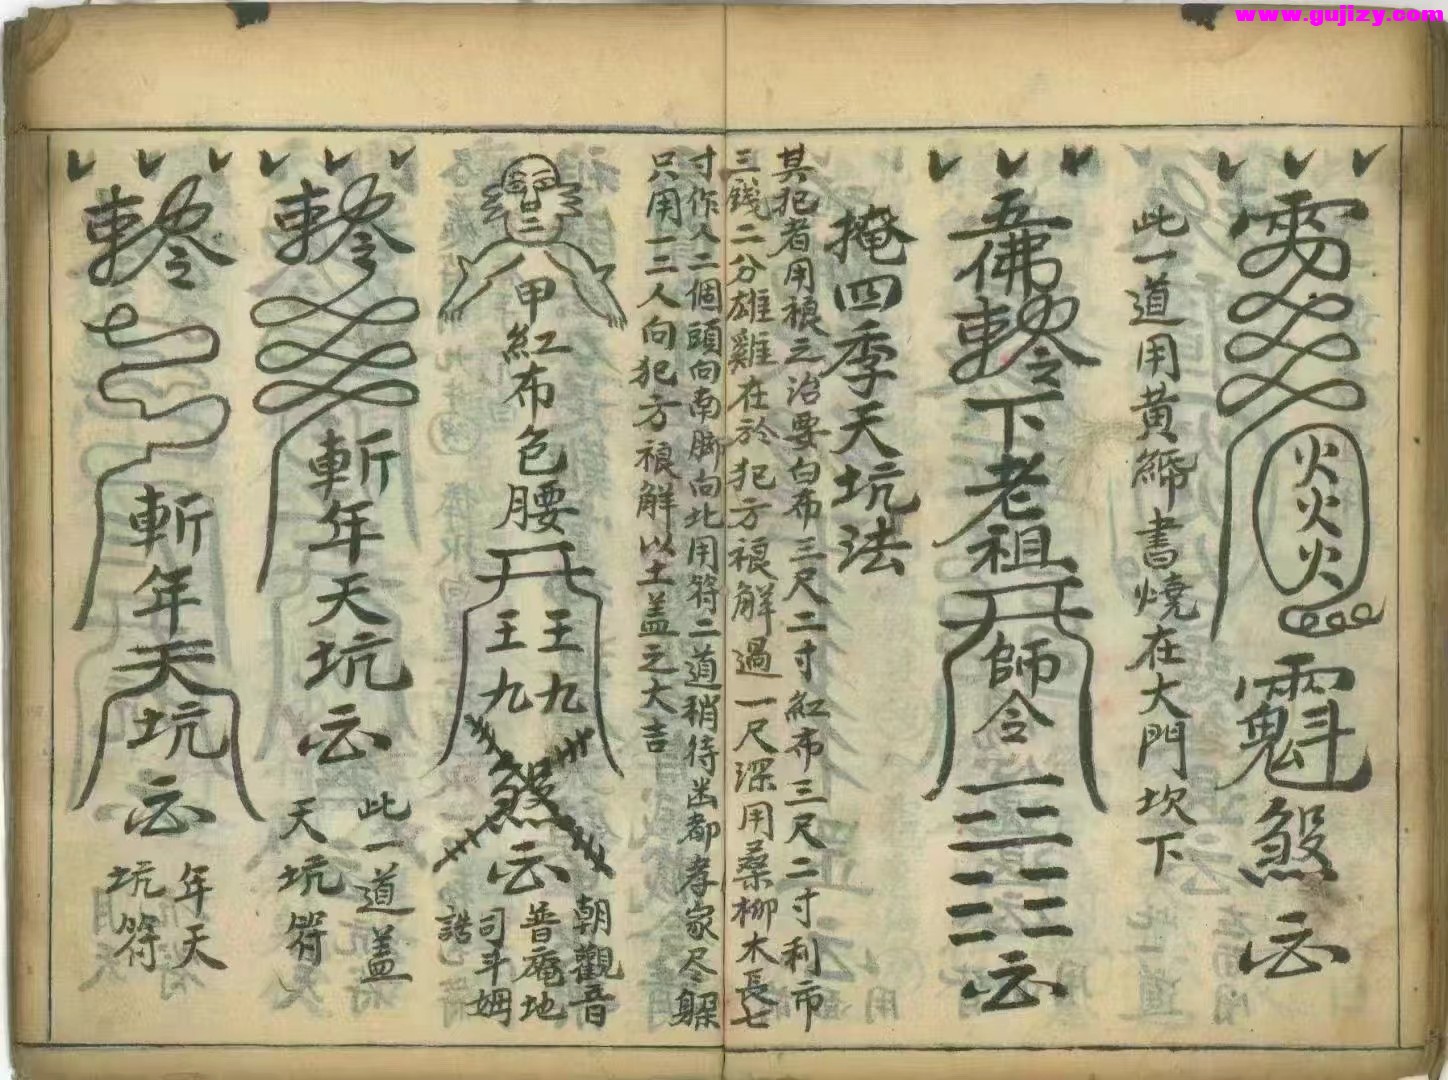 www.gujizy.com
火火火
魁煞
此一道用黃紙書燒在大門坎下
五佛敕令下老祖
師令
掩四季天坑法
其犯者用禳之治要白布三尺二寸紅布三尺二寸利市
三錢二分雄雞在於犯方禳解過一尺深用桑柳木長七
寸作人二個頭向南脚向北用符二道稍待出都孝家尽躲
只用一二人向犯方禳解以土盖之大吉
甲紅布色腰
王王
九九
煞
朝觀音
普庵地
司斗姆
誥
敕令
斬年天坑
此一道盖
天坑符
敕令
斬年天坑
年天
坑符